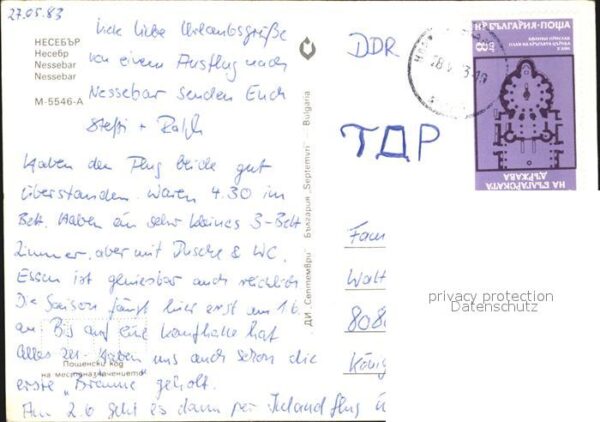 27.05.83
НЕСЕБЪР
Несебр
Nessebar
Nessebar
М-5546-А
Viele liebe Urlaubsgrüße
von einem Ausflug nach
Nessebar senden Euch
Steffi + Ralph
Haben den Flug beide gut
überstanden. Waren 4.30 im
Bett. Haben ein sehr kleines 3-Bett
Zimmer, aber mit Dusche & WC.
Essen ist genießbar auch reichlich.
Die Saison fängt hier erst am 1.6.
an. Bis auf eine Kaufhalle hat
alles zu. Haben uns auch schon die
erste „Bräune" geholt.
Am 2.6 geht es dann per Inlandflug
Пощенски код
на местоназначението
ДИ „Септември" България „Septemvri" Bulgaria
DDR
ТДР
НР БЪЛГАРИЯ·ПОЩА
НА БЪЛГАРСКАТА
ДЪРЖАВА
Fam
Walt
808
König
privacy protection
Datenschutz